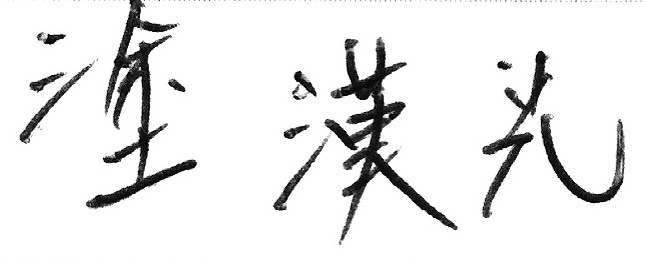 塗漢光